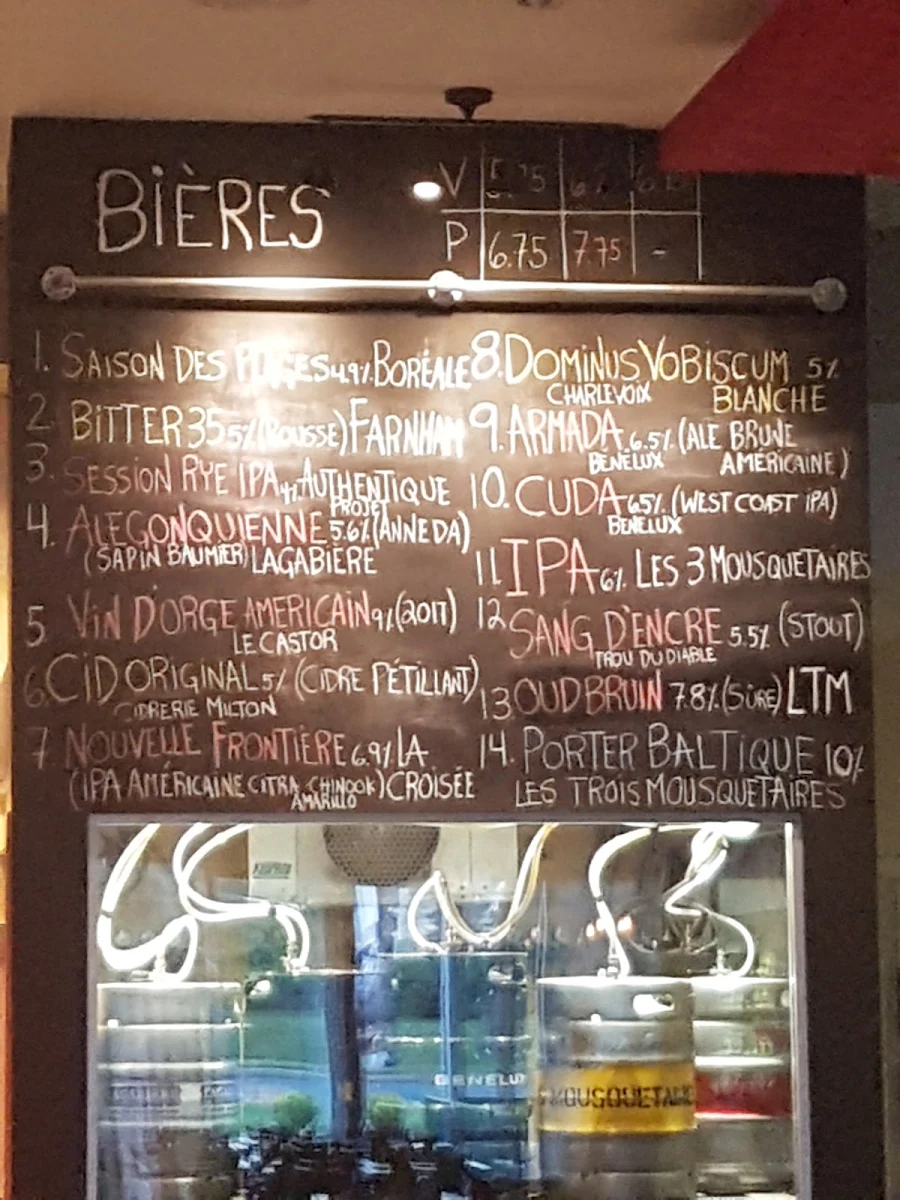 BIÈRES
V
P 6.75 7.75 -
1. SAISON DES 4.9% BORÉALE
2 BITTER 35 5% (ROUSSE) FARNHAM
3. SESSION RYE IPA 4% AUTHENTIQUE
PROJET
4. ALEGONQUIENNE 5.6% (ANNEDA)
(SAPIN BAUMIER) LAGABIÈRE
5 VIN D'ORGE AMERICAIN 9% (2017)
LE CASTOR
6. CID ORIGINAL 5% (CIDRE PÉTILLANT)
CIDRERIE MILTON
7 NOUVELLE FRONTIÈRE 6.9% LA
(IPA AMÉRICAINE CITRA, CHINOOK) CROISÉE
AMARILLO
8. DOMINUS VOBISCUM 5%
CHARLEVOIX BLANCHE
9. ARMADA 6.5% (ALE BRUNE
BENELUX AMÉRICAINE)
10. CUDA 6.5% (WEST COAST IPA)
BENELUX
11 IPA 6% LES 3 MOUSQUETAIRES
12 SANG D'ENCRE 5.5% (STOUT)
TROU DU DIABLE
13 OUD BRUIN 7.8% (SÛRE) LTM
14. PORTER BALTIQUE 10%
LES TROIS MOUSQUETAIRES
BENELU
MOUSQUETAIR